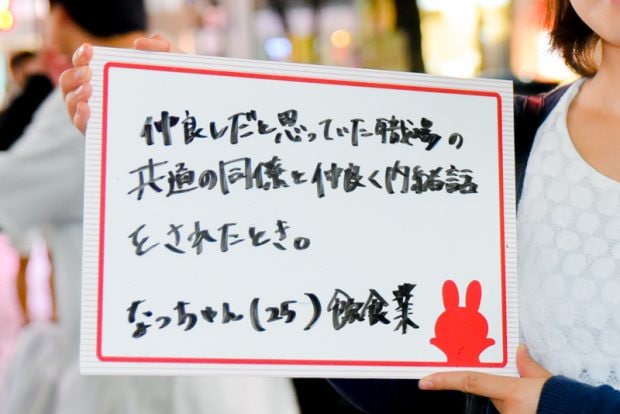 仲良しだと思っていた職場の
共通の同僚と仲良く内緒話
をされたとき。
なっちゃん(25)飲食業